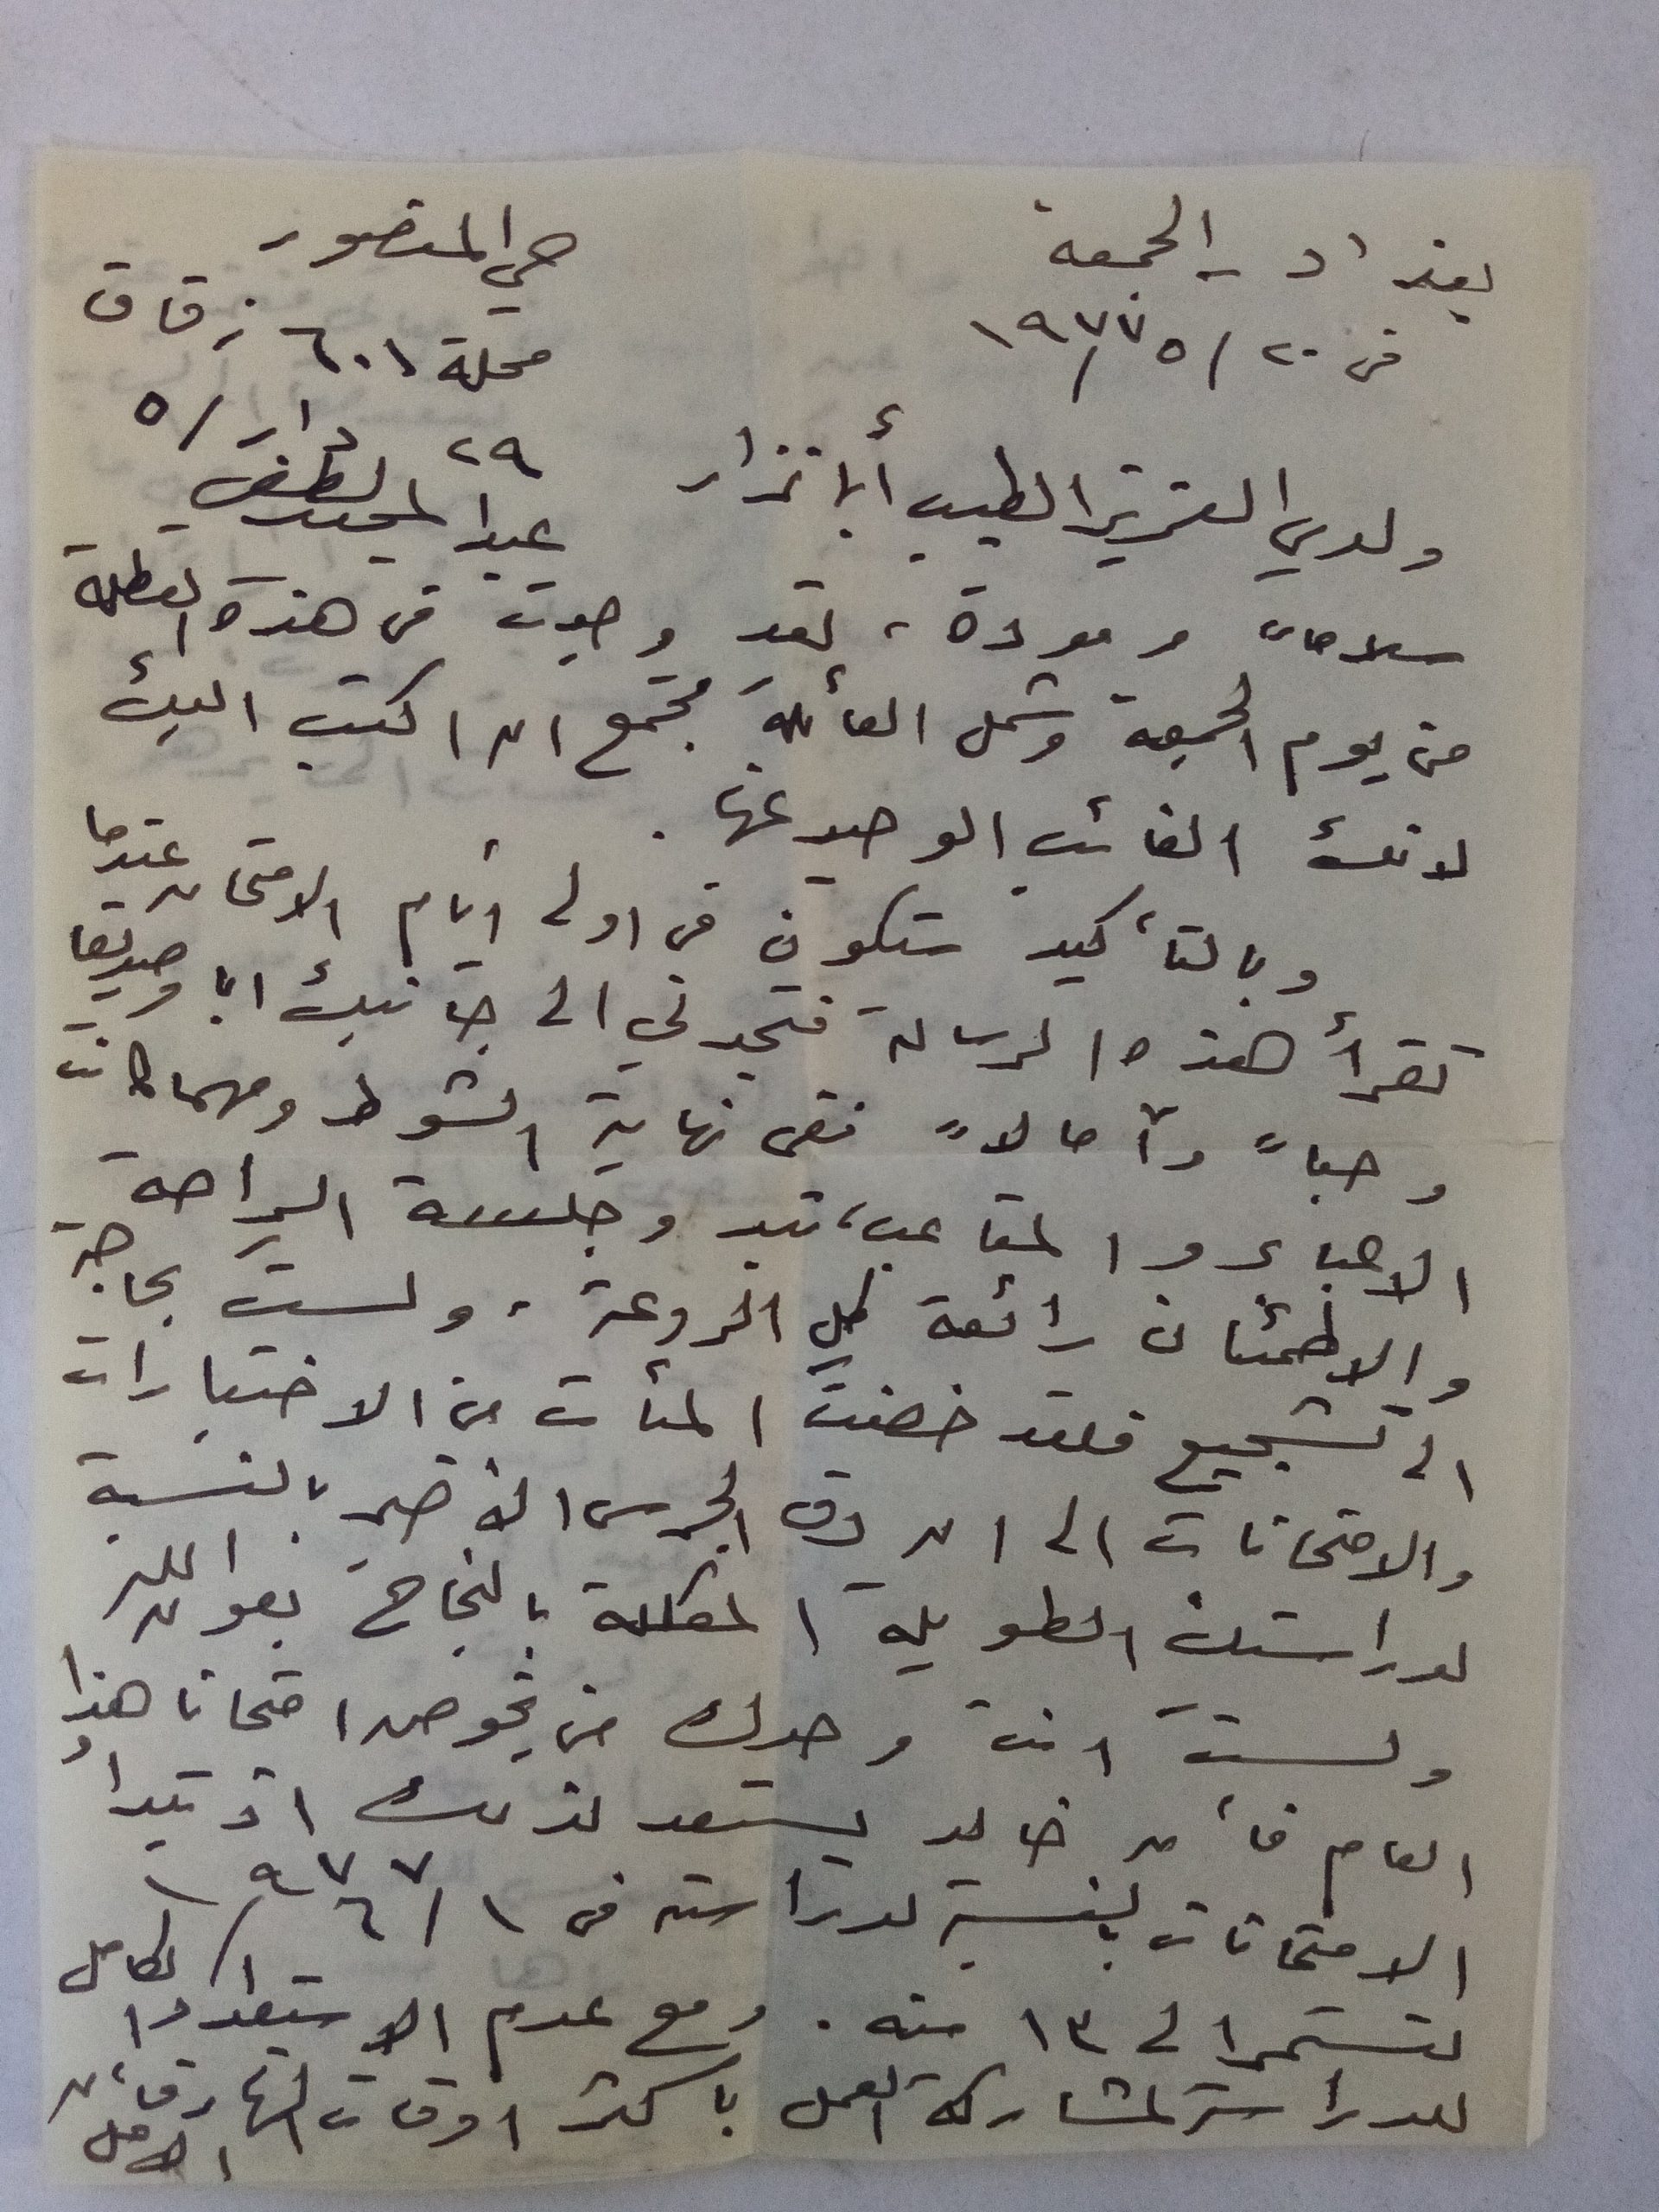 بغداد - الجمعة
في ٢٠/٥/١٩٧٧
حي المنصور
محلة ٦٠١ زقاق
٢٩ دار/٥
عبدالمجيد لطفي
ولدي العزيز الطيب أبا نزار
سلاماً ومودة، لقد وجدت في هذه العطلة
من يوم الجمعة وشمل العائلة مجتمع ان اكتب اليك
لانك الغائب الوحيد عنها.
وبالتأكيد ستكون في اولى ايام الامتحان عندما
تقرأ هذه الرسالة فتجدني الى جانبك ابا وصديقا
وحباً وآمالاً ففي نهاية الشوط ومهما كانت
الاعباء والمتاعب، تبدو جلسة الراحة
والاطمئنان رائعة كل الروعة، ولست بحاجة
الى تشجيع فلقد خضت المئات من الاختبارات
والامتحانات الى ان دق الجرس الاخير بالنسبة
لدراستك الطويلة المكللة بالنجاح بعون الله
ولست انت وحدك من يخوض امتحانا هذا
العام فأن خالد يستعد لذلك اذ تبدأ
الامتحانات بالنسبة لدراسته في ١/٦/١٩٧٧
لتستمر الى ١٣ منه. ومع عدم الاستعداد الكامل
للدراسة لمشاركة العمل باكثر اوقات النهار فأن
الامل